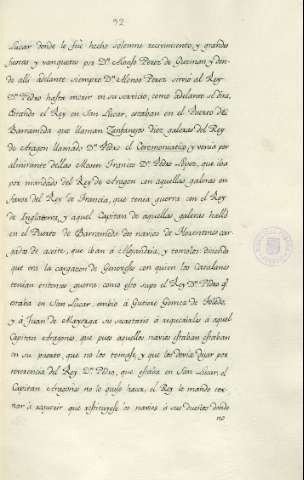 52
Lucar donde le fue hecho solemne recivimiento, y grandes
fiestas y vanquetes por Dn. Alonso Perez de Guzman y den-
de alli adelante siempre Dn. Alonso Perez sirvió al Rey
Dn. Pedro hasta morir en su servicio, como adelante se dira,
Estando el Rey en San Lucar, estaban en el Puerto de
Barrameda que llaman Zanfanejos diez galeras del Rey
de Aragon llamado Dn. Pedro el Ceremoniatico, y venia por
almirante dellas Mosen Frances Dn. Pedro Lopez, que iba
por mandado del Rey de Aragon con aquellas galeras en
favor del Rey de Francia, que tenia guerra con el Rey
de Inglaterra, y aquel Capitan de aquellas galeras halló
en el Puerto de Barrameda dos navios de Florentines car-
gados de aceite, que iban á Alejandria, y tomolos diciendo
que era la cargazon de Genoveses con quien los Catalanes
tenian entonces guerra como esto supo el Rey Dn. Pedro q.
estaba en San Lucar embió á Gutierre Gomez de Toledo,
y á Juan de Mayorga su secretario á requerirles á aquel
Capitan Aragones, que pues aquellos navios estaban
en su puerto, que no los tomase, y que los devia dejar por
reverencia del Rey Dn. Pedro, que estaba en San Lucar, el
Capitan Aragones no lo quiso hacer, el Rey le mandó tor-
nar á requerir que restituyese los navios á sus dueños donde
no